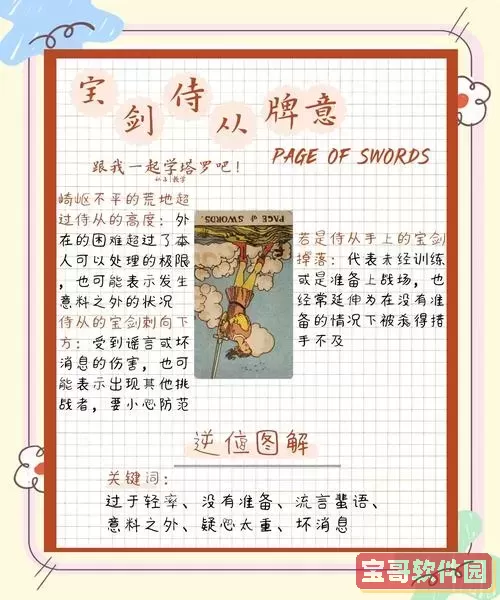 宝剑侍从牌意
PAGE OF SWORDS
跟我一起学塔罗吧！
崎岖不平的荒地超
过侍从的高度：外
在的困难超过了本
人可以处理的极限
，也可能表示发生
意料之外的状况
侍从的宝剑刺向下
方：受到谣言或坏
消息的伤害，也可
能表示出现其他挑
战者，要小心防范
PAGE of SWORDS.
若是侍从手上的宝剑
掉落：代表未经训练
或是准备上战场，也
经常延伸为在没有准
备的情况下被杀得措
手不及
逆位图解
关键词：
过于轻率、没有准备、流言蜚语、
意料之外、疑心太重、坏消息
宝哥软件园